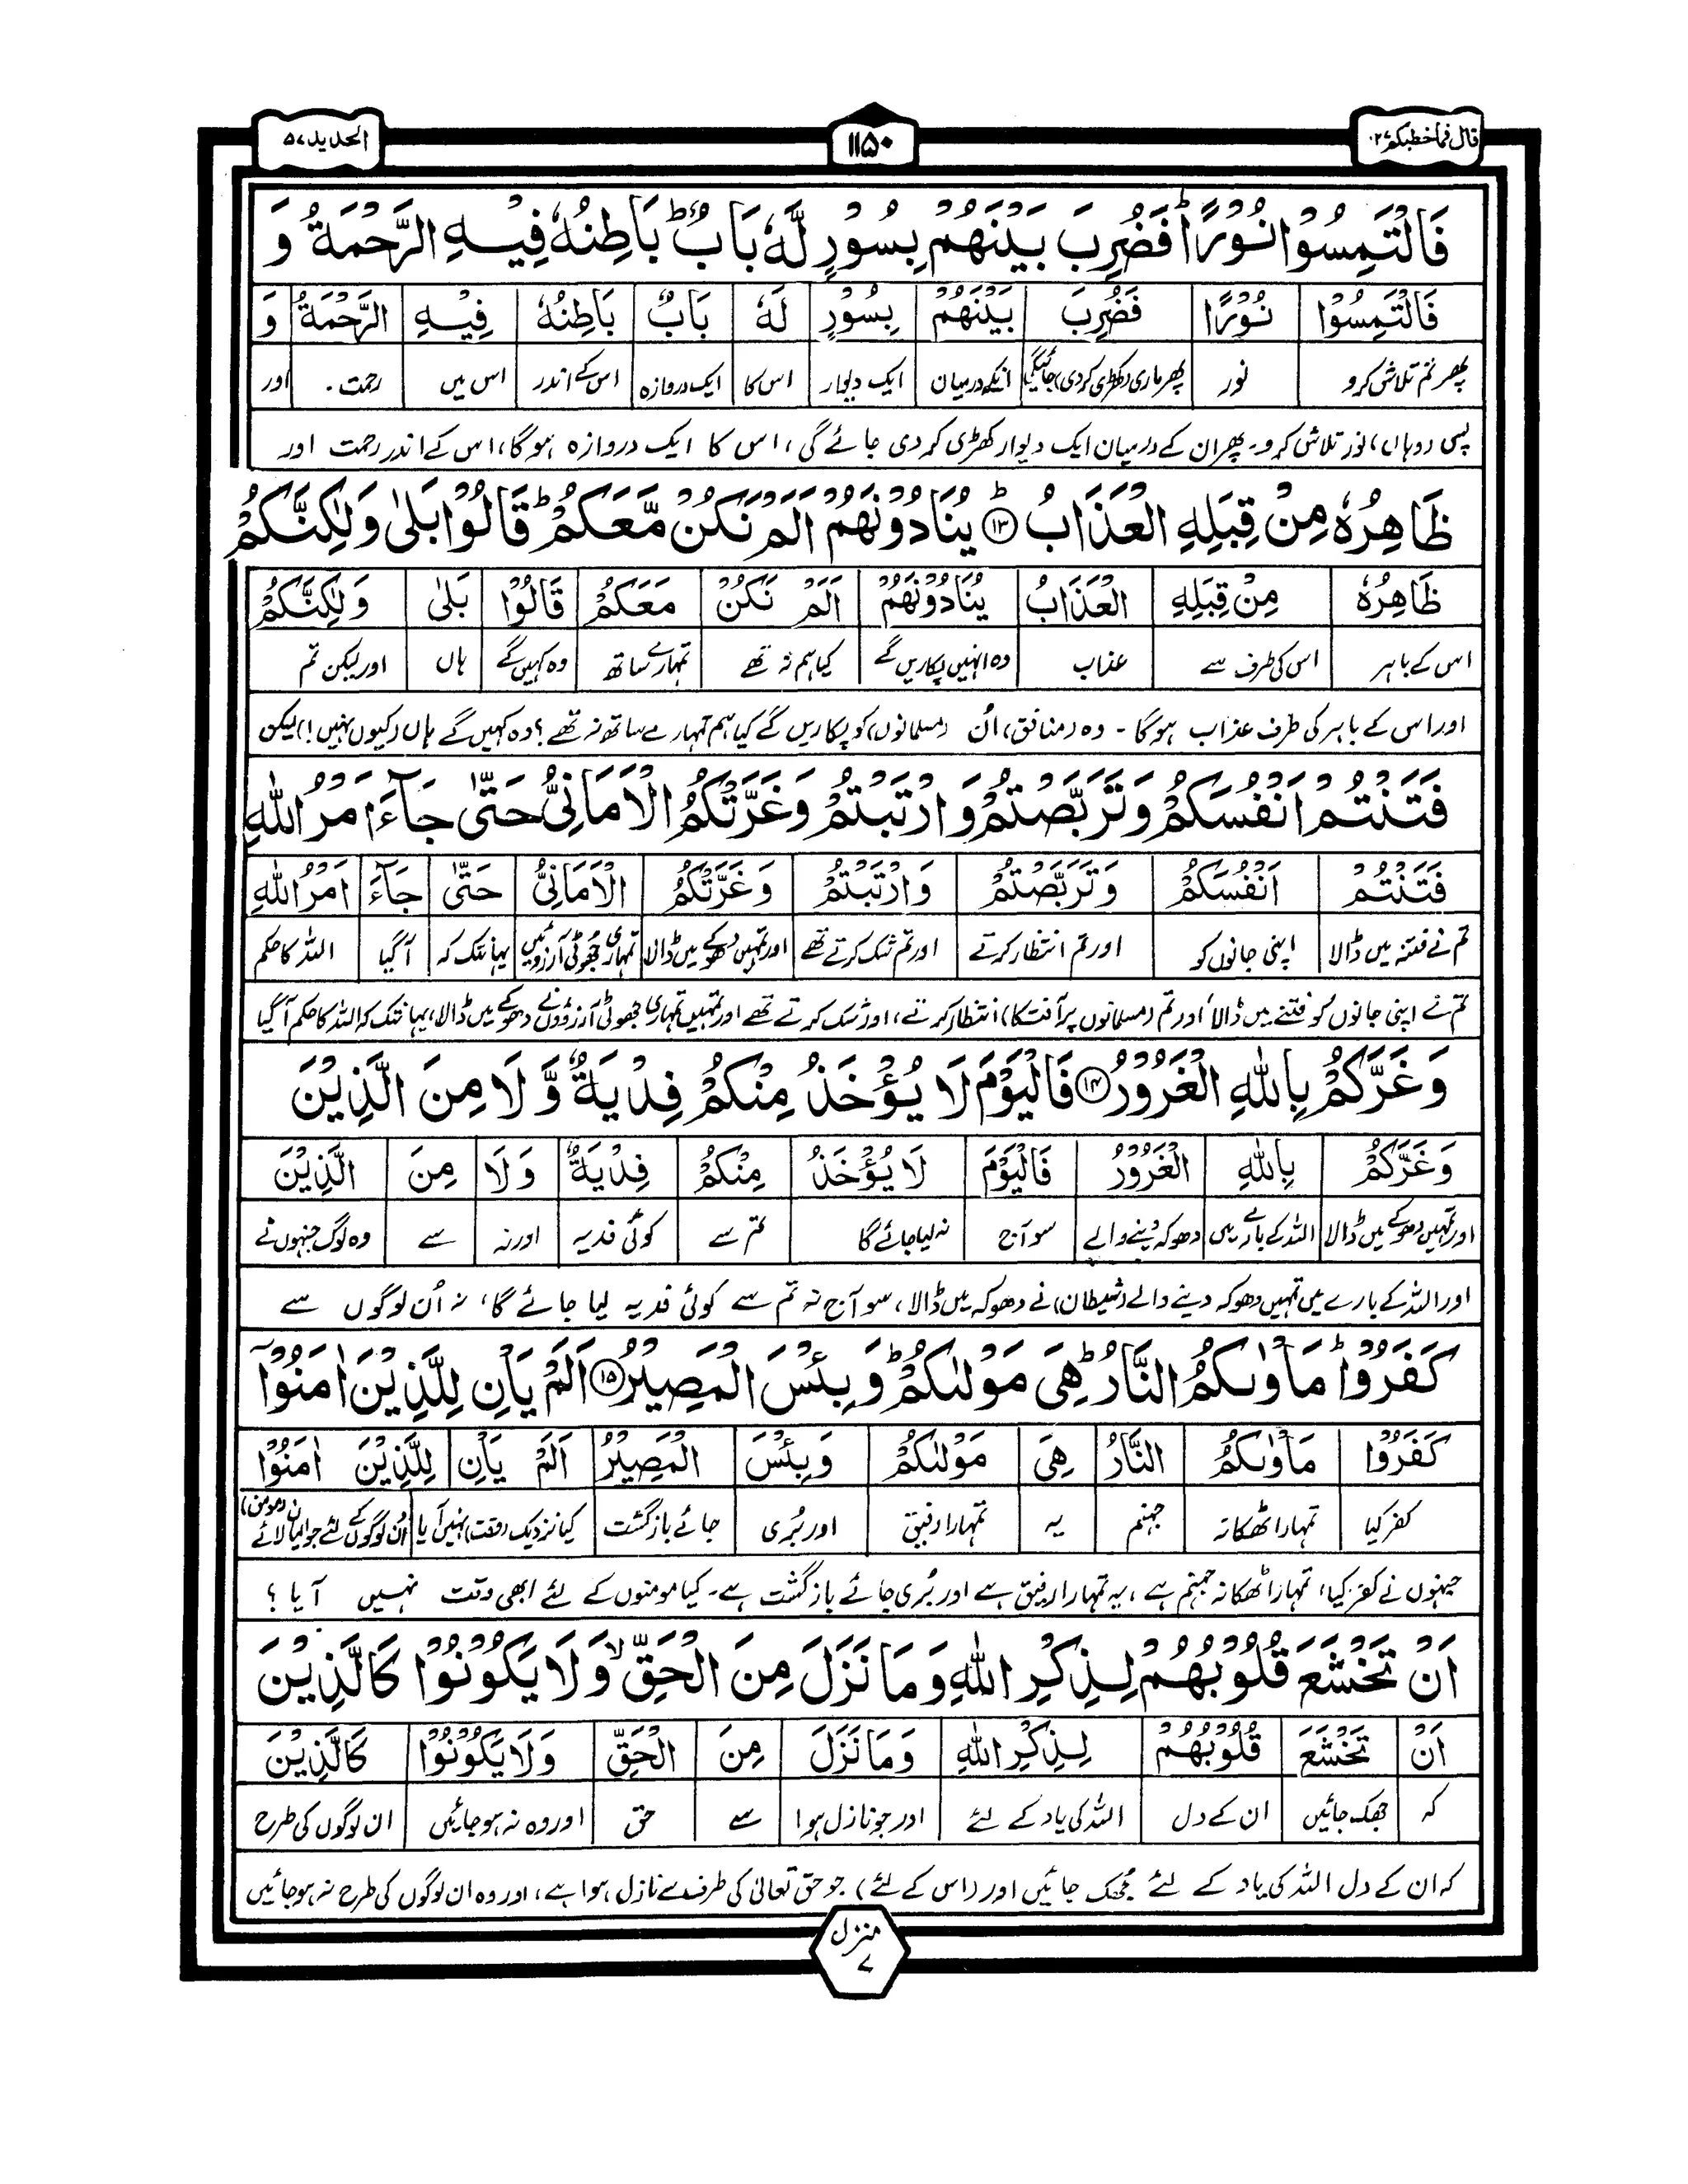 قال فماخطبکم ۲۷
۱۱۵۰
الحدید ۵۷
فَالْتَمِسُوْا نُوْرًا ؕ فَضُرِبَ بَيْنَهُمْ بِسُوْرٍ لَّهٗ بَابٌ ؕ بَاطِنُهٗ فِيْهِ الرَّحْمَةُ وَ
فَالْتَمِسُوْا نُوْرًا فَضُرِبَ بَيْنَهُمْ بِسُوْرٍ لَهٗ بَابٌ بَاطِنُهٗ فِيْهِ الرَّحْمَةُ وَ
پھر تم تلاش کرو نور پھر ماری (کھڑی کردی) جائیگی انکے درمیان ایک دیوار اس کا ایک دروازہ اس کے اندر اس میں رحمت۔ اور
پس (وہاں) نور تلاش کرو۔ پھر ان کے درمیان ایک دیوار کھڑی کر دی جائے گی، اس کا ایک دروازہ ہو گا، اس کے اندر رحمت اور
ظَاهِرُهٗ مِنْ قِبَلِهِ الْعَذَابُ ؕ ۱۳ يُنَادُوْنَهُمْ اَلَمْ نَكُنْ مَّعَكُمْ ؕ قَالُوْا بَلٰى وَلٰكِنَّكُمْ
ظَاهِرُهٗ مِنْ قِبَلِهِ الْعَذَابُ يُنَادُوْنَهُمْ اَلَمْ نَكُنْ مَعَكُمْ قَالُوْا بَلٰى وَلٰكِنَّكُمْ
اس کے باہر اس کی طرف سے عذاب وہ انہیں پکاریں گے کیا ہم نہ تھے تمہارے ساتھ وہ کہیں گے ہاں اور لیکن تم
اور اس کے باہر کی طرف عذاب ہوگا۔ وہ (منافق) اُن (مسلمانوں) کو پکاریں گے کیا ہم تمہارے ساتھ نہ تھے؟ وہ کہیں گے ہاں (کیوں نہیں!) لیکن
فَتَنْتُمْ اَنْفُسَكُمْ وَتَرَبَّصْتُمْ وَارْتَبْتُمْ وَغَرَّتْكُمُ الْاَمَانِيُّ حَتّٰى جَآءَ اَمْرُ اللّٰهِ
فَتَنْتُمْ اَنْفُسَكُمْ وَتَرَبَّصْتُمْ وَارْتَبْتُمْ وَغَرَّتْكُمُ الْاَمَانِيُّ حَتّٰى جَآءَ اَمْرُ اللّٰهِ
تم نے فتنہ میں ڈالا اپنی جانوں کو اور تم انتظار کرتے اور تم شک کرتے تھے اور تمہیں دھوکے میں ڈالا تمہاری جھوٹی آرزوئیں یہانتک کہ آ گیا اللہ کا حکم
تم نے اپنی جانوں کو فتنے میں ڈالا اور تم (مسلمانوں پر آفت کا) انتظار کرتے، اور شک کرتے تھے اور تمہیں تمہاری جھوٹی آرزوؤں نے دھوکے میں ڈالا، یہانتک کہ اللہ کا حکم آگیا
وَغَرَّكُمْ بِاللّٰهِ الْغَرُوْرُ ۱۴ فَالْيَوْمَ لَا يُؤْخَذُ مِنْكُمْ فِدْيَةٌ وَّ لَا مِنَ الَّذِيْنَ
وَغَرَّكُمْ بِاللّٰهِ الْغَرُوْرُ فَالْيَوْمَ لَا يُؤْخَذُ مِنْكُمْ فِدْيَةٌ وَلَا مِنَ الَّذِيْنَ
اور تمہیں دھوکے میں ڈالا اللہ کے بارے میں دھوکہ دینے والے سو آج نہ لیا جائے گا تم سے کوئی فدیہ اور نہ سے وہ لوگ جنہوں نے
اور اللہ کے بارے میں تمہیں دھوکہ دینے والے (شیطان) نے دھوکہ میں ڈالا، سو آج نہ تم سے کوئی فدیہ لیا جائے گا، نہ اُن لوگوں سے
كَفَرُوْا ؕ مَاْوٰىكُمُ النَّارُ ؕ هِيَ مَوْلٰىكُمْ ؕ وَبِئْسَ الْمَصِيْرُ ۱۵ اَلَمْ يَاْنِ لِلَّذِيْنَ اٰمَنُوْٓا
كَفَرُوْا مَاْوٰىكُمُ النَّارُ هِيَ مَوْلٰىكُمْ وَبِئْسَ الْمَصِيْرُ اَلَمْ يَاْنِ لِلَّذِيْنَ اٰمَنُوْٓا
کفر کیا تمہارا ٹھکانہ جہنم یہ تمہارا رفیق اور بُری جائے بازگشت کیا نزدیک (وقت) نہیں آیا اُن لوگوں کے لئے جو ایمان لائے (مومن)
جنہوں نے کفر کیا، تمہارا ٹھکانہ جہنم ہے، یہ تمہارا رفیق ہے اور بُری جائے بازگشت ہے۔ کیا مومنوں کے لئے ابھی وقت نہیں آیا؟
اَنْ تَخْشَعَ قُلُوْبُهُمْ لِذِكْرِ اللّٰهِ وَمَا نَزَلَ مِنَ الْحَقِّ ۙ وَلَا يَكُوْنُوْا كَالَّذِيْنَ
اَنْ تَخْشَعَ قُلُوْبُهُمْ لِذِكْرِ اللّٰهِ وَمَا نَزَلَ مِنَ الْحَقِّ وَلَا يَكُوْنُوْا كَالَّذِيْنَ
کہ جھک جائیں ان کے دل اللہ کی یاد کے لئے اور جو نازل ہوا سے حق اور وہ نہ ہو جائیں ان لوگوں کی طرح
کہ ان کے دل اللہ کی یاد کے لئے جھک جائیں اور (اس کے لئے) جو حق تعالیٰ کی طرف سے نازل ہوا ہے، اور وہ ان لوگوں کی طرح نہ ہو جائیں
منزل ۷